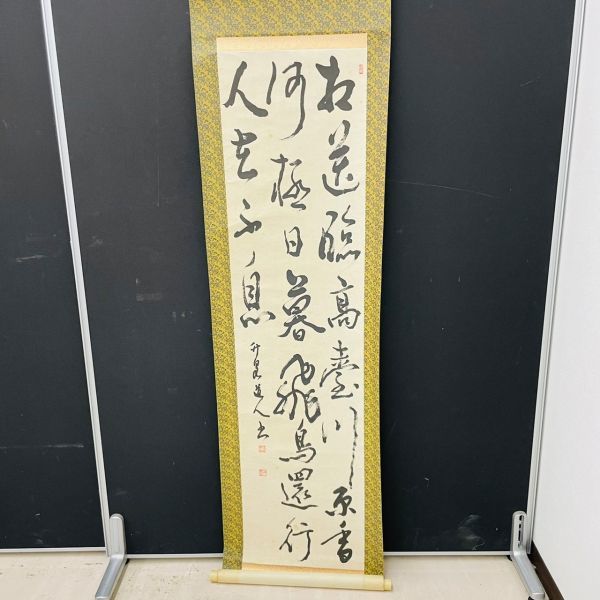 相送臨高臺川原杳
何極日暮飛鳥還行
人去不息
道人書